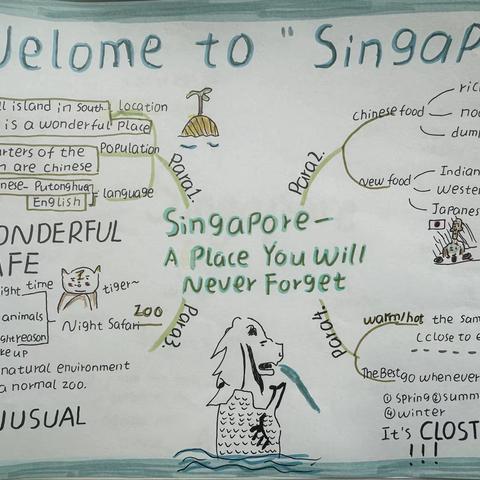 Welome to "Singap
ll island in south- location
is a wonderful Place
Population
arters of the
n are chinese
nese- Putonghua
English
language
Para1.
ONDERFUL
AFE
ight time
tiger~
animals
ght reason
ke up
Night Safari
Zoo
Para3.
natural environment
a normal zoo.
NUSUAL
Singapore—
A Place You Will
Never Forget
Para2.
chinese food
ric
noo
dum
New food
Indian
Wester
Japanes
Para4.
warm/hot the sam
(close to e
The Best go whenever
① spring ② summ
④ winter
It's CLOST
!!!